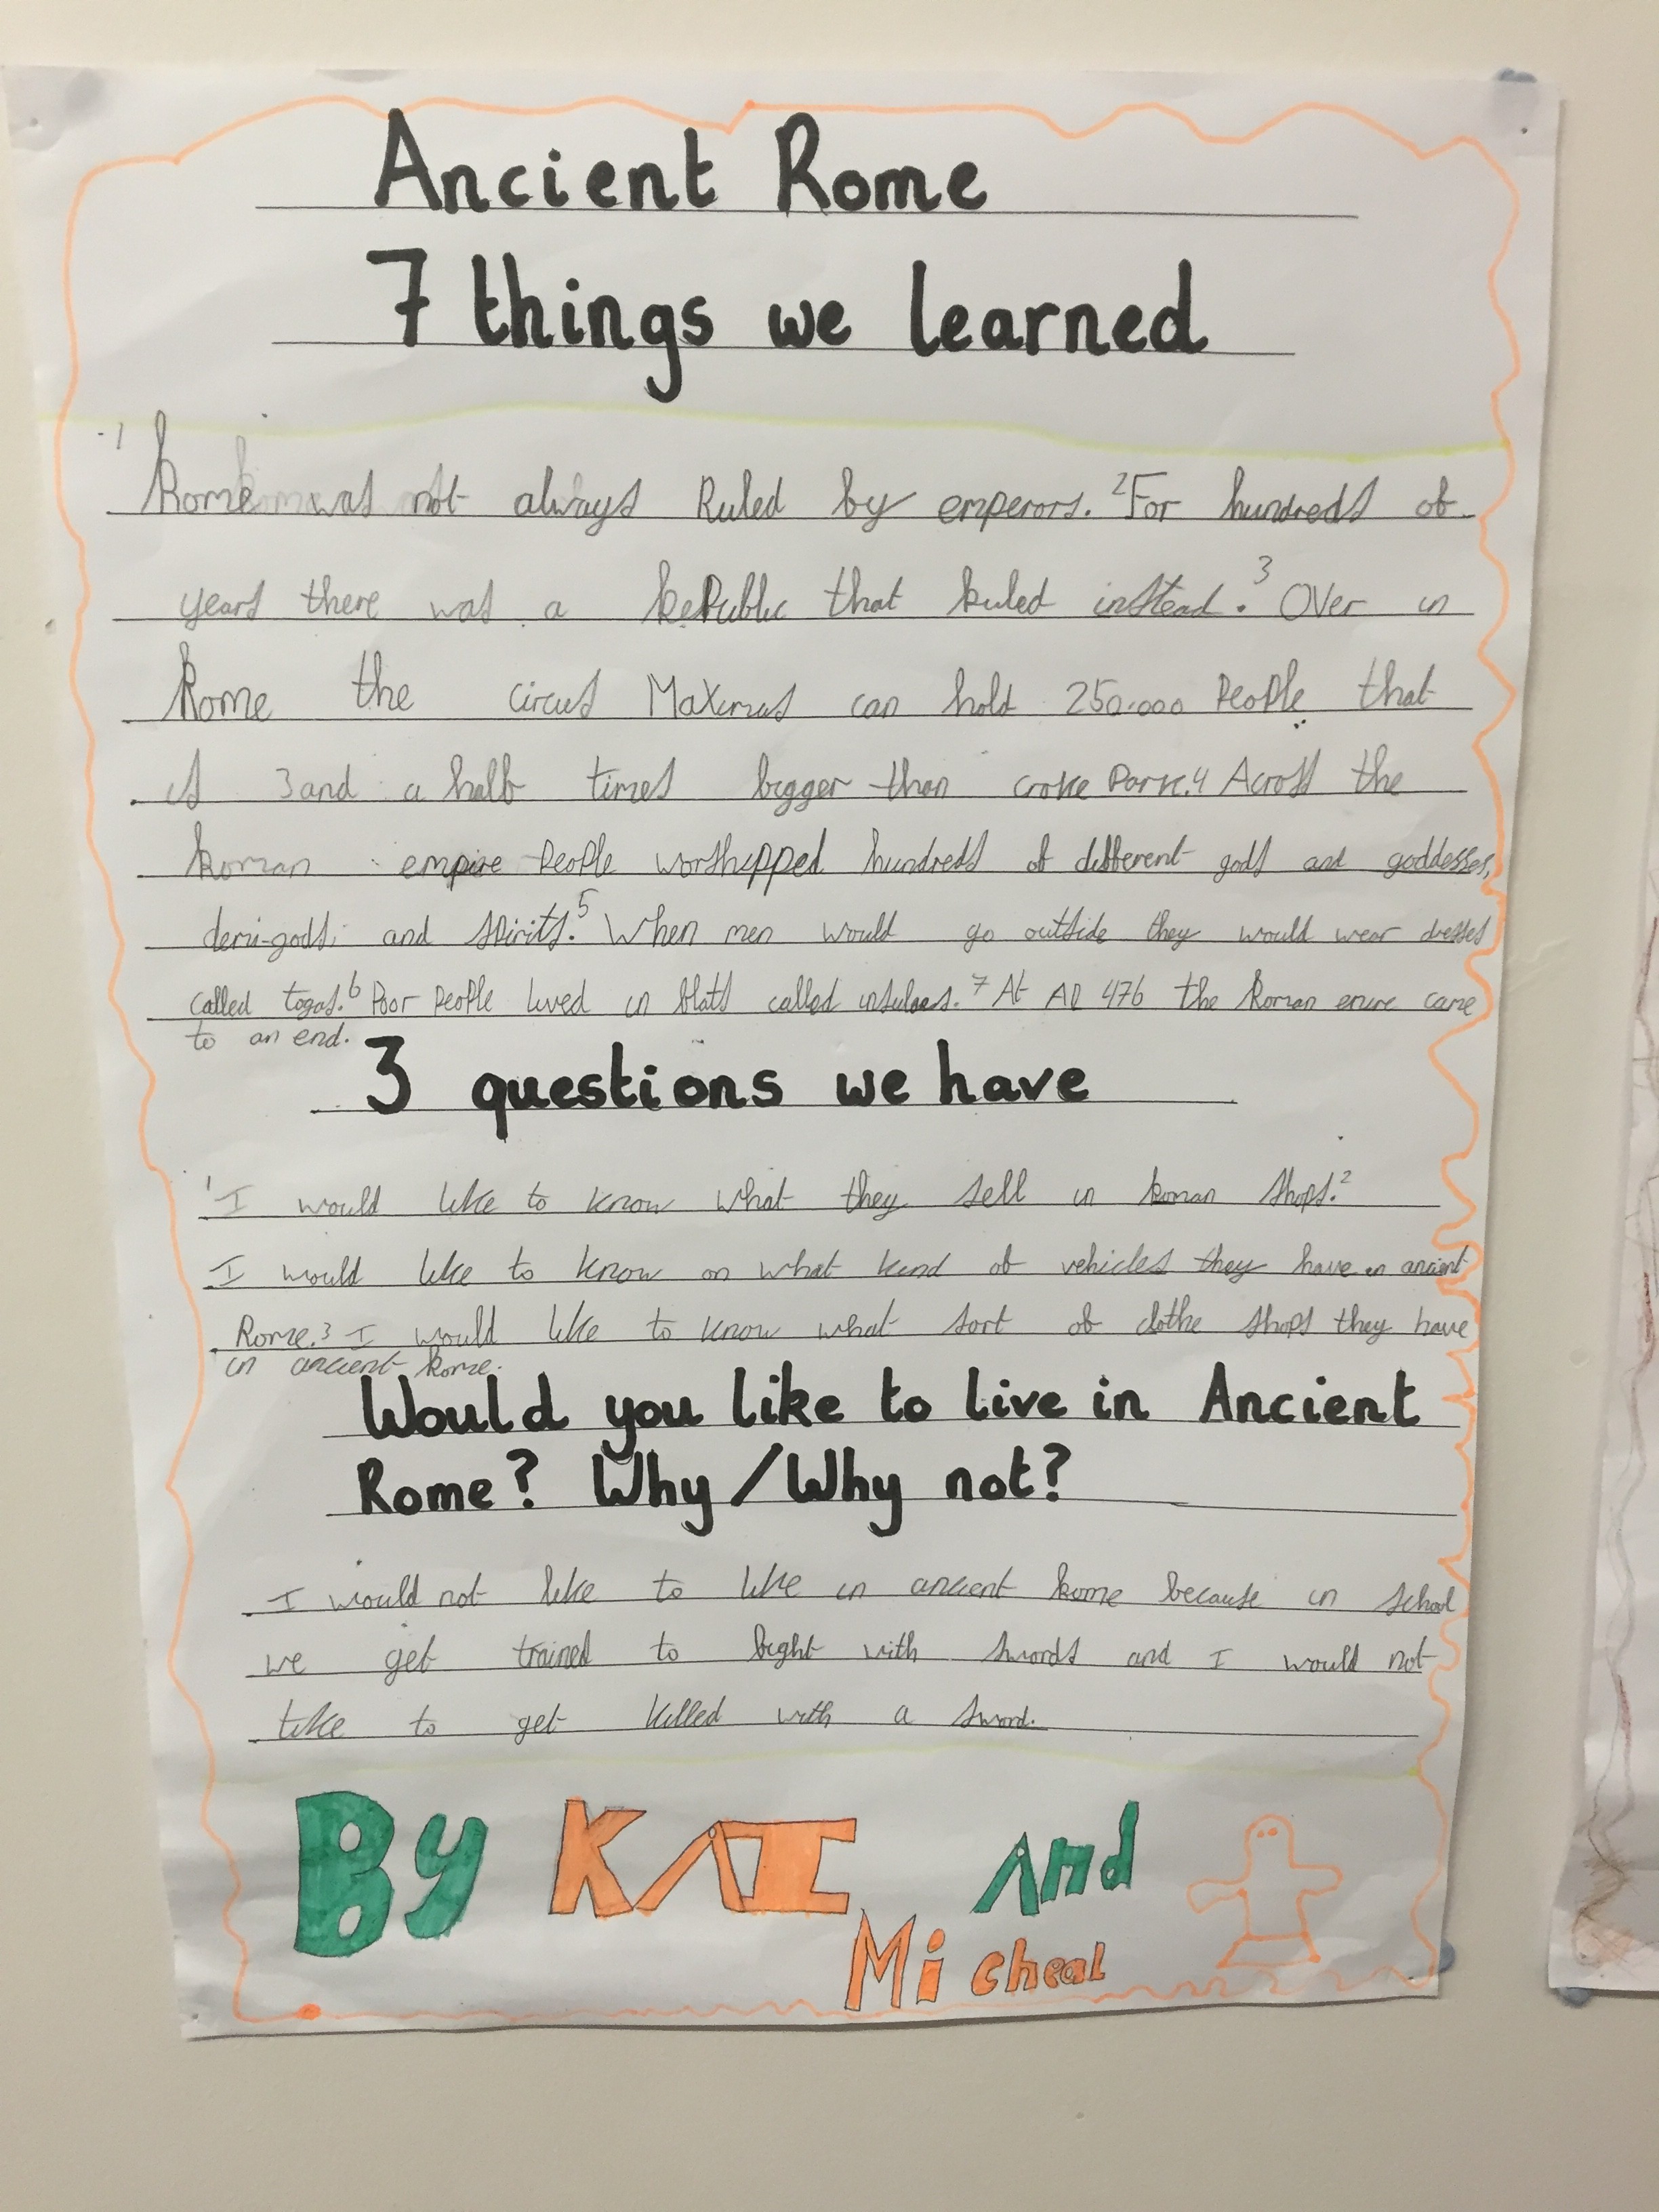 Ancient Rome
7 things we learned
1 Rome was not always Ruled by emperors. 2 For hundreds of
years there was a RePublic that Ruled instead. 3 Over in
Rome the circus Maximus can hold 250.000 People that
is 3 and a half times bigger than croke Park. 4 Across the
Roman empire People worshipped hundreds of different gods and goddesses,
demi-gods, and spirits. 5 When men would go outside they would wear dresses
called togas. 6 Poor People lived in flats called 7 At AD 476 the Roman came
to an end.
3 questions we have
1 I would like to know what they sell in Roman shops. 2
I would like to know on what kind of vehicles they have in ancient
Rome. 3 I would like to know what sort of clothe shops they have
in ancient Rome.
Would you like to live in Ancient
Rome? Why/Why not?
I would not like to like in ancient Rome because in school
we get trained to fight with swords and I would not
like to get killed with a sword.
By KAI And
Micheal